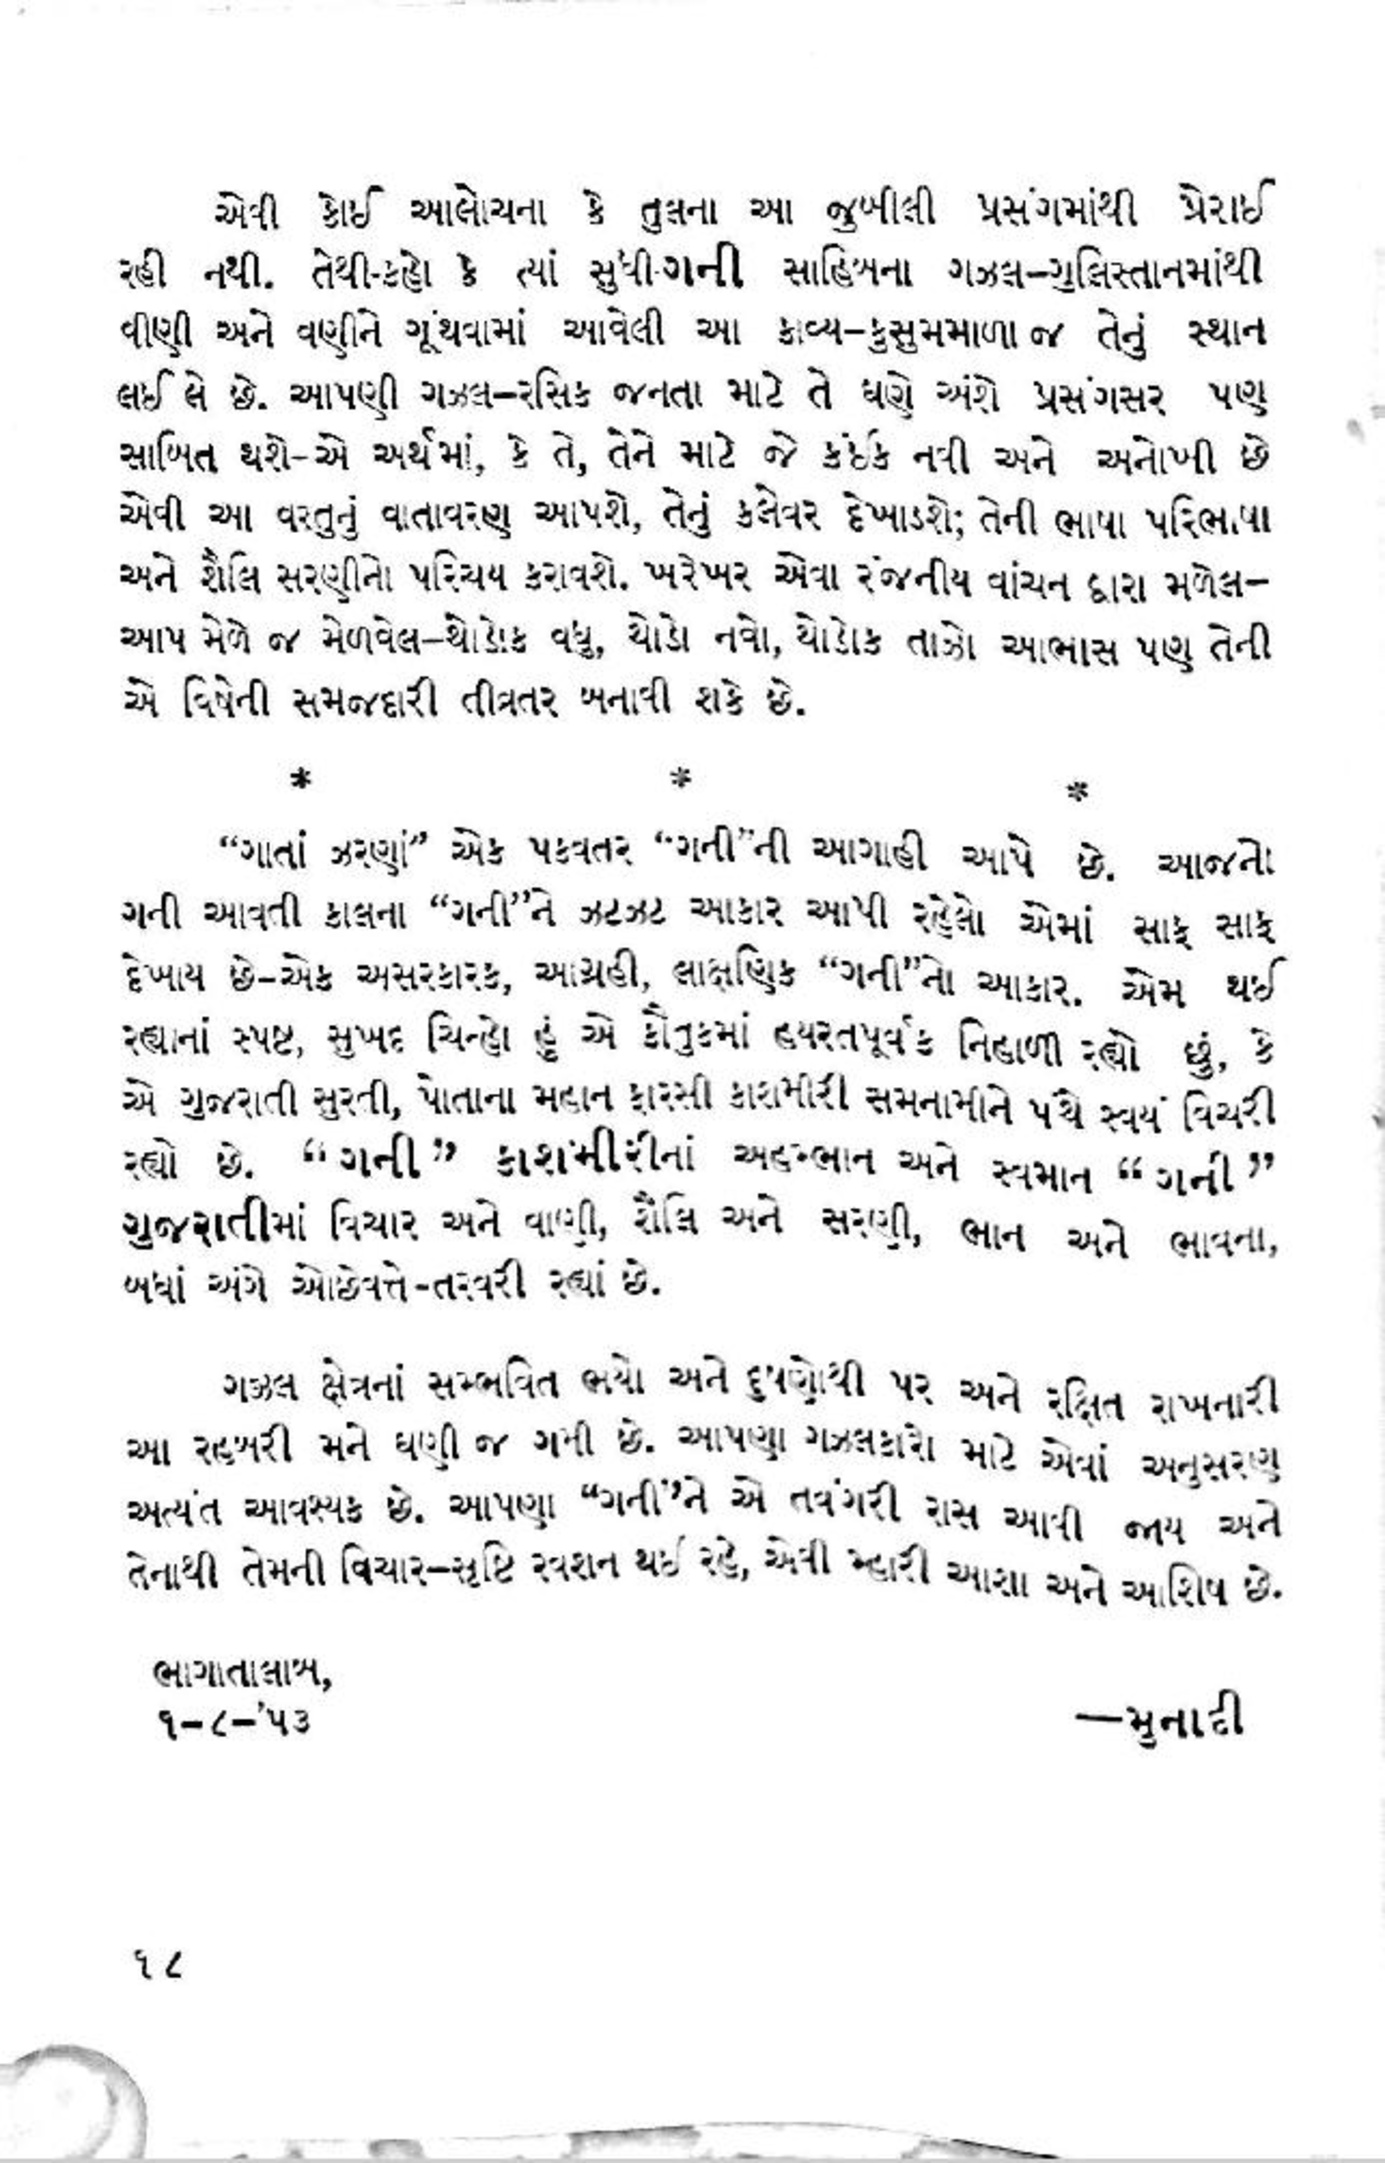 એવી કોઈ આલોચના કે તુલના આ જુબીલી પ્રસંગમાંથી પ્રેરાઈ
રહી નથી. તેથી-કહો કે ત્યાં સુધી-ગની સાહિબના ગઝલ-ગુલિસ્તાનમાંથી
વીણી અને વણીને ગૂંથવામાં આવેલી આ કાવ્ય-કુસુમમાળા જ તેનું સ્થાન
લઈ લે છે. આપણી ગઝલ-રસિક જનતા માટે તે ઘણે અંશે પ્રસંગસર પણ
સાબિત થશે-એ અર્થમાં, કે તે, તેને માટે જે કંઈક નવી અને અનોખી છે
એવી આ વસ્તુનું વાતાવરણ આપશે, તેનું કલેવર દેખાડશે; તેની ભાષા પરિભાષા
અને શૈલિ સરણીનો પરિચય કરાવશે. ખરેખર એવા રંજનીય વાંચન દ્વારા મળેલ-
આપ મેળે જ મેળવેલ-થોડોક વધુ, થોડો નવો, થોડોક તાઝો આભાસ પણ તેની
એ વિષેની સમજદારી તીવ્રતર બનાવી શકે છે.
* * *
“ગાતાં ઝરણાં” એક પકવતર “ગની”ની આગાહી આપે છે. આજનો
ગની આવતી કાલના “ગની”ને ઝટઝટ આકાર આપી રહેલો એમાં સાફ સાફ
દેખાય છે-એક અસરકારક, આગ્રહી, લાક્ષણિક “ગની”નો આકાર. એમ થઈ
રહ્યાનાં સ્પષ્ટ, સુખદ ચિન્હો હું એ કૌતુકમાં હયરતપૂર્વક નિહાળી રહ્યો છું, કે
એ ગુજરાતી સુરતી, પોતાના મહાન ફારસી કાશમીરી સમનામીને પંથે સ્વયં વિચરી
રહ્યો છે. “ગની” કાશમીરીનાં અહમ્ભાન અને સ્વમાન “ગની”
ગુજરાતીમાં વિચાર અને વાણી, શૈલિ અને સરણી, ભાન અને ભાવના,
બધાં અંગે ઓછેવત્તે-તરવરી રહ્યાં છે.
ગઝલ ક્ષેત્રનાં સમ્ભવિત ભયો અને દુષણોથી પર અને રક્ષિત રાખનારી
આ રહબરી મને ઘણી જ ગમી છે. આપણા ગઝલકારો માટે એવાં અનુસરણ
અત્યંત આવશ્યક છે. આપણા “ગની”ને એ તવંગરી રાસ આવી જાય અને
તેનાથી તેમની વિચાર-સૃષ્ટિ રવશન થઈ રહે, એવી મ્હારી આશા અને આશિષ છે.
ભાગાતાલાબ,
૧-૮-’૫૩
—મુનાદી
૧૮